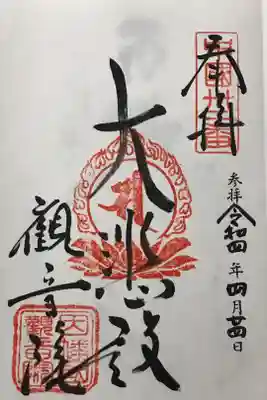 奉拝
参拝 令和四年四月廿四日
大悲殿
觀音院